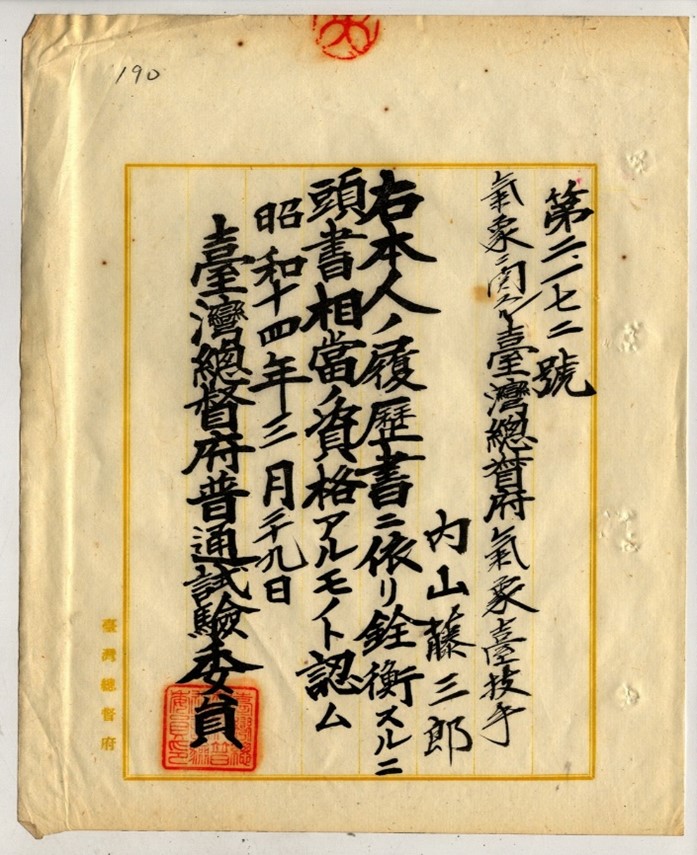 190
第二一七二號
臺灣總督府氣象臺技手
内山藤三郎
右本人ノ履歷書ニ依リ銓衡スルニ
頭書相當ノ資格アルモノト認ム
昭和十四年三月二十九日
臺灣總督府普通試驗委員
臺灣總督府